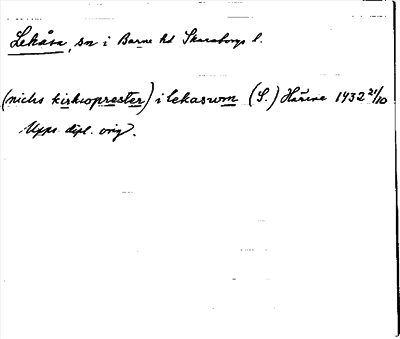 Lekåsa, sn i Barne hd Skaraborgs l.
(niclis kirkioprester) i lekaswm (S.) Härene 1432 21/10
Upps. dipl. orig.